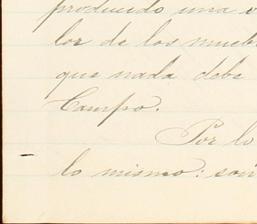 producido una
lor de los
que nada debe
Campo.
Por lo
lo mismo: son